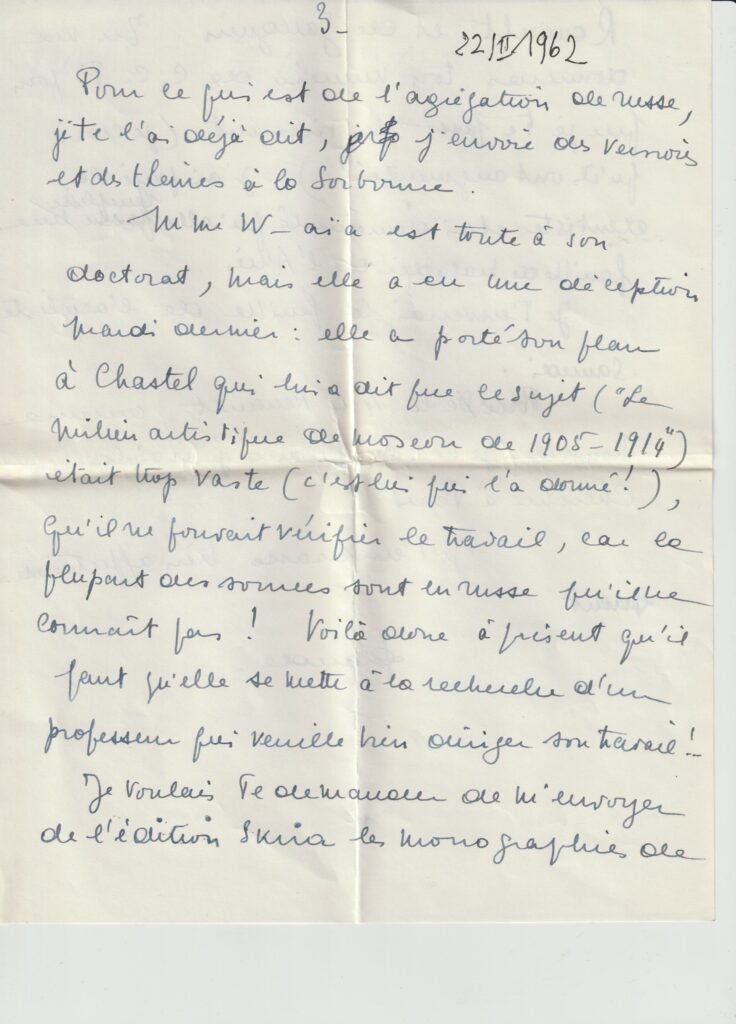 3-
22/II/1962
Pour ce qui est de l'agrégation de russe,
je te l'ai déjà dit, j'envoie des versions
et des thèmes à la Sorbonne.
Mme W-aïa est toute à son
doctorat, mais elle a eu une déception
mardi dernier : elle a porté son plan
à Chastel qui lui a dit que le sujet ("Le
milieu artistique de Moscou de 1905-1914")
était trop vaste (c'est lui qui l'a donné!),
qu'il ne pouvait vérifier le travail, car la
plupart des sources sont en russe qu'il ne
connaît pas ! Voilà donc à présent qu'il
faut qu'elle se mette à la recherche d'un
professeur qui veuille bien diriger son travail!-
Je voulais Te demander de m'envoyer
de l'édition Skira les monographies de